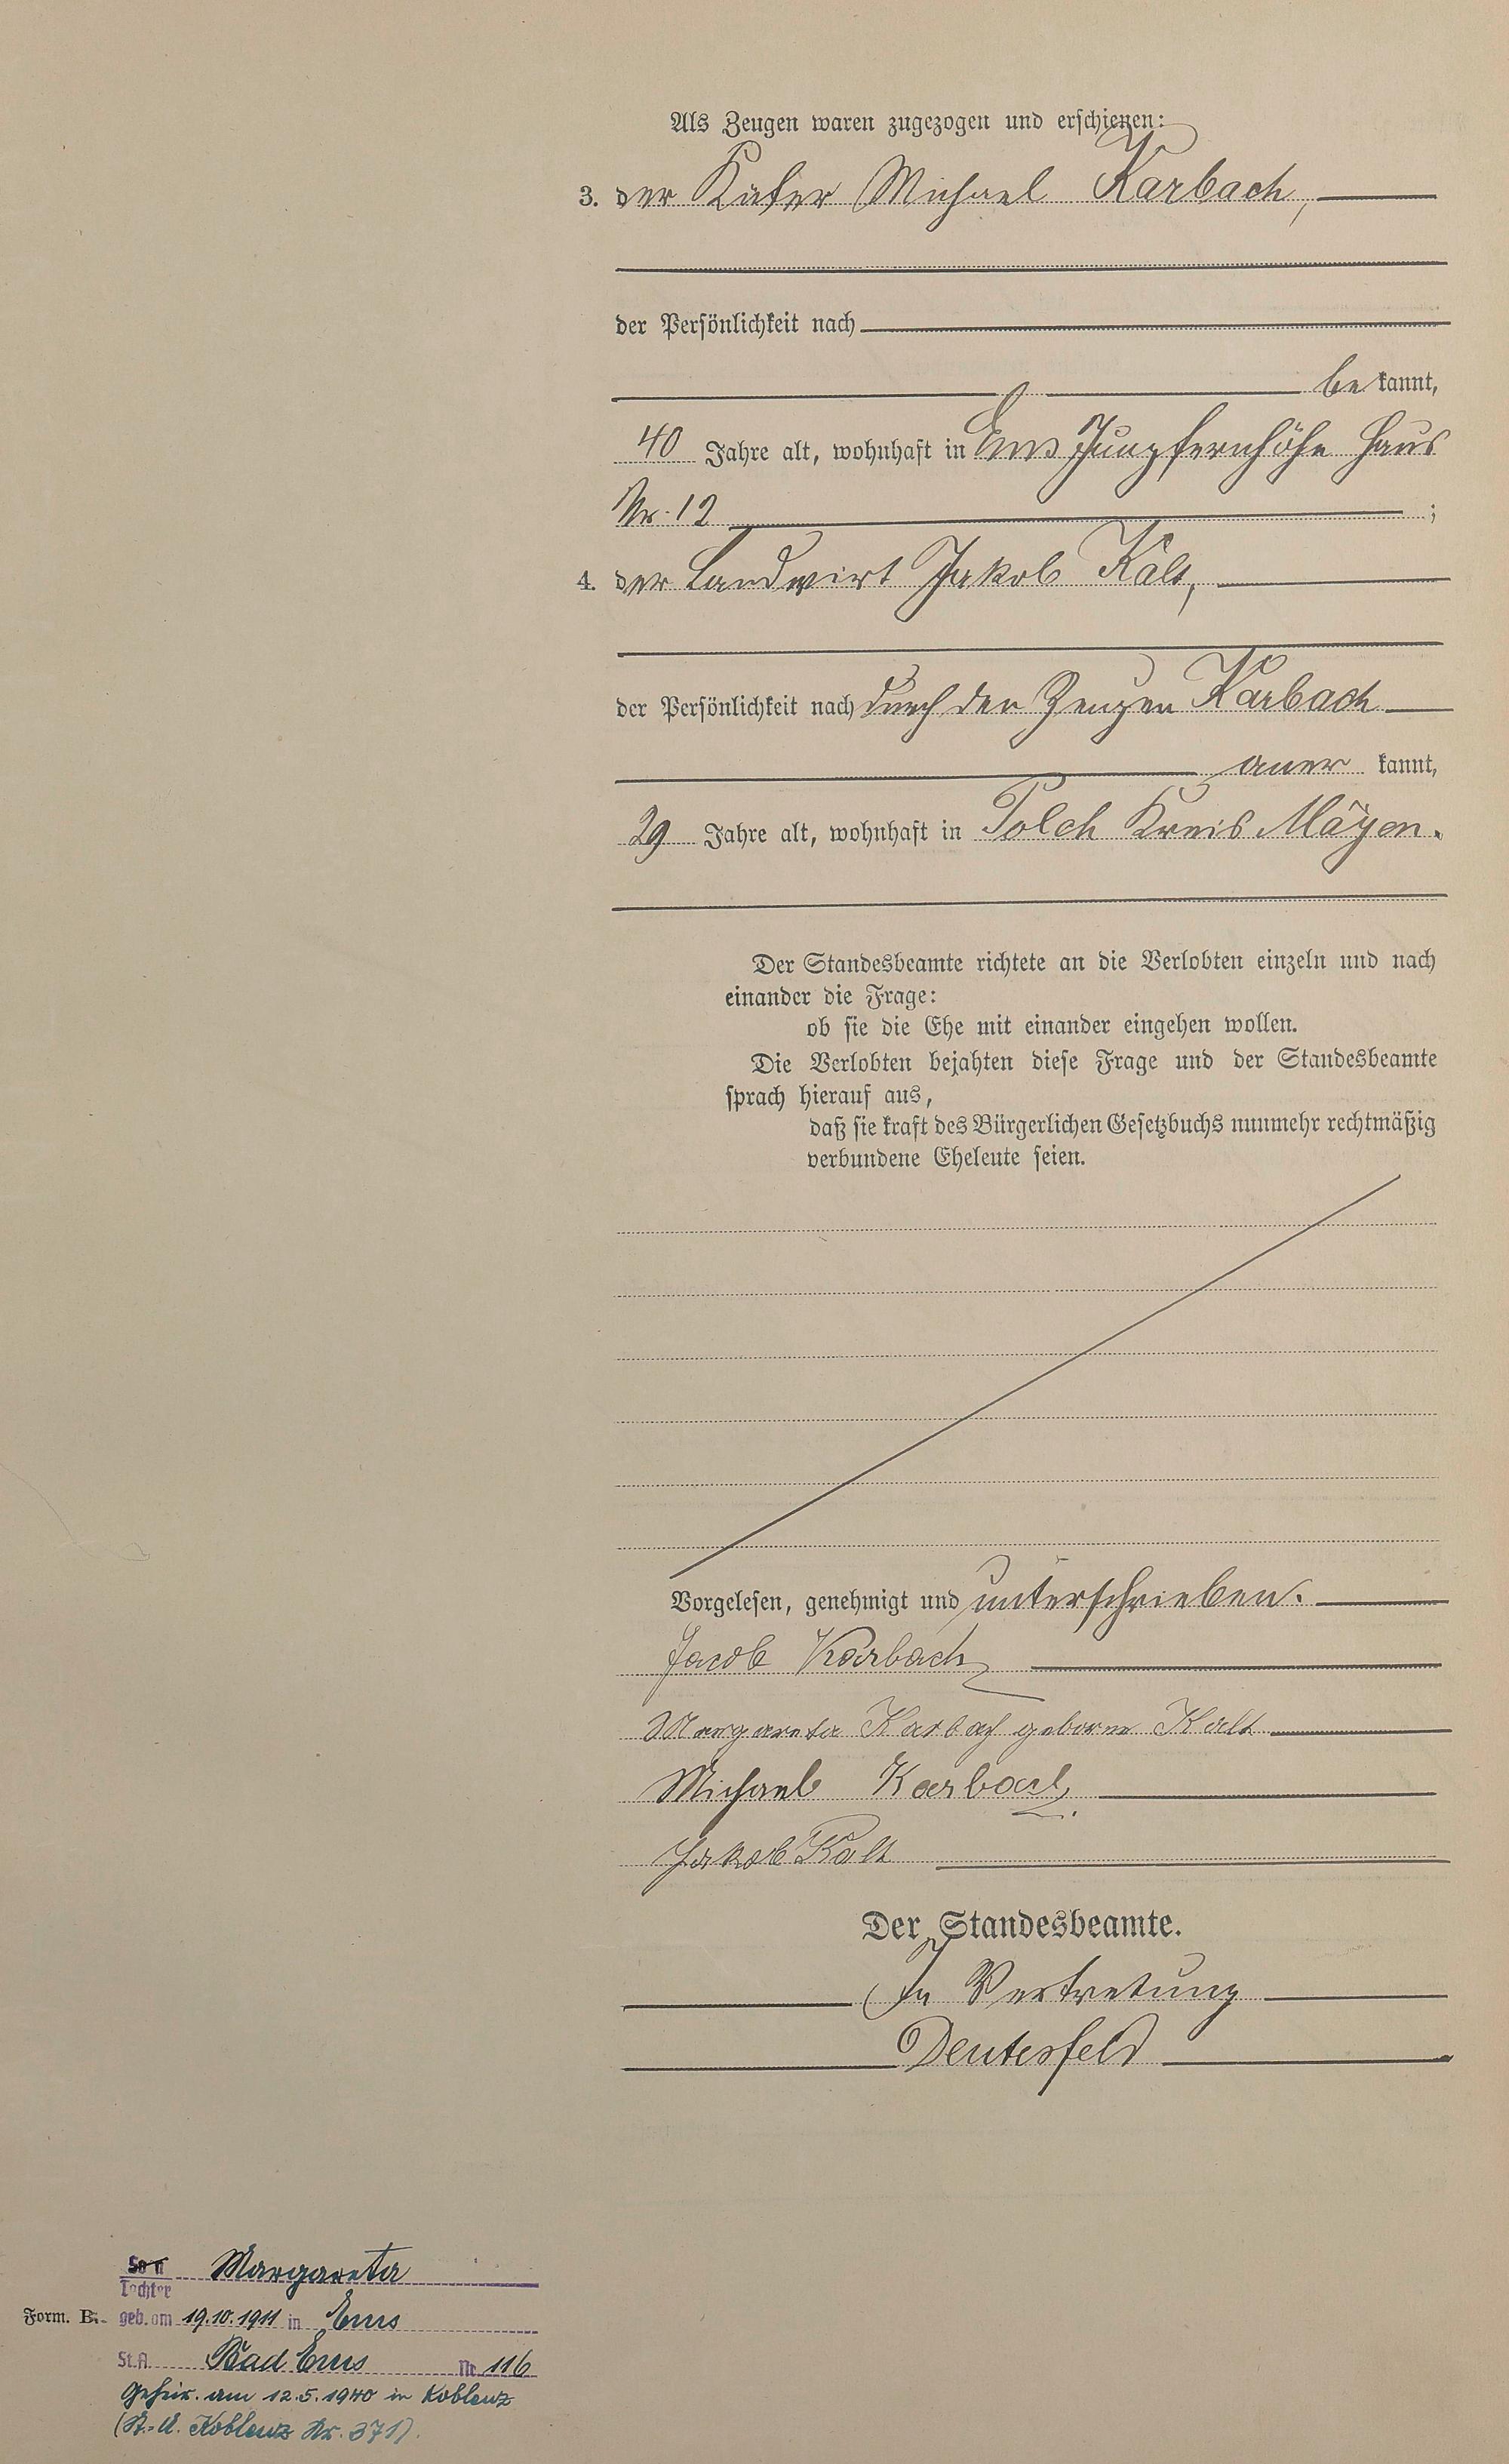 Als Zeugen waren zugezogen und erschienen:
3. der Küfer Michael Karbach,
der Persönlichkeit nach
be kannt,
40 Jahre alt, wohnhaft in Ems Jungfernhöhe Haus
Nr. 12 ;
4. der Landwirt Jakob Kalt,
der Persönlichkeit nach durch den Zeugen Karbach
aner kannt,
29 Jahre alt, wohnhaft in Polch Kreis Mayen.
Der Standesbeamte richtete an die Verlobten einzeln und nach
einander die Frage:
ob sie die Ehe mit einander eingehen wollen.
Die Verlobten bejahten diese Frage und der Standesbeamte
sprach hierauf aus,
daß sie kraft des Bürgerlichen Gesetzbuchs nunmehr rechtmäßig
verbundene Eheleute seien.
Vorgelesen, genehmigt und unterschrieben.
Jacob Karbach
Margareta Karbach geborne Kalt
Michael Karbach.
Jakob Kalt
Der Standesbeamte.
In Vertretung
Deutesfeld
Sohn Margareta
Tochter
Form. B. geb. am 19.10.1911 in Ems
St.A. Bad Ems Nr. 116
Geheir. am 12.5.1940 in Koblenz
(St.-A. Koblenz Nr. 371).